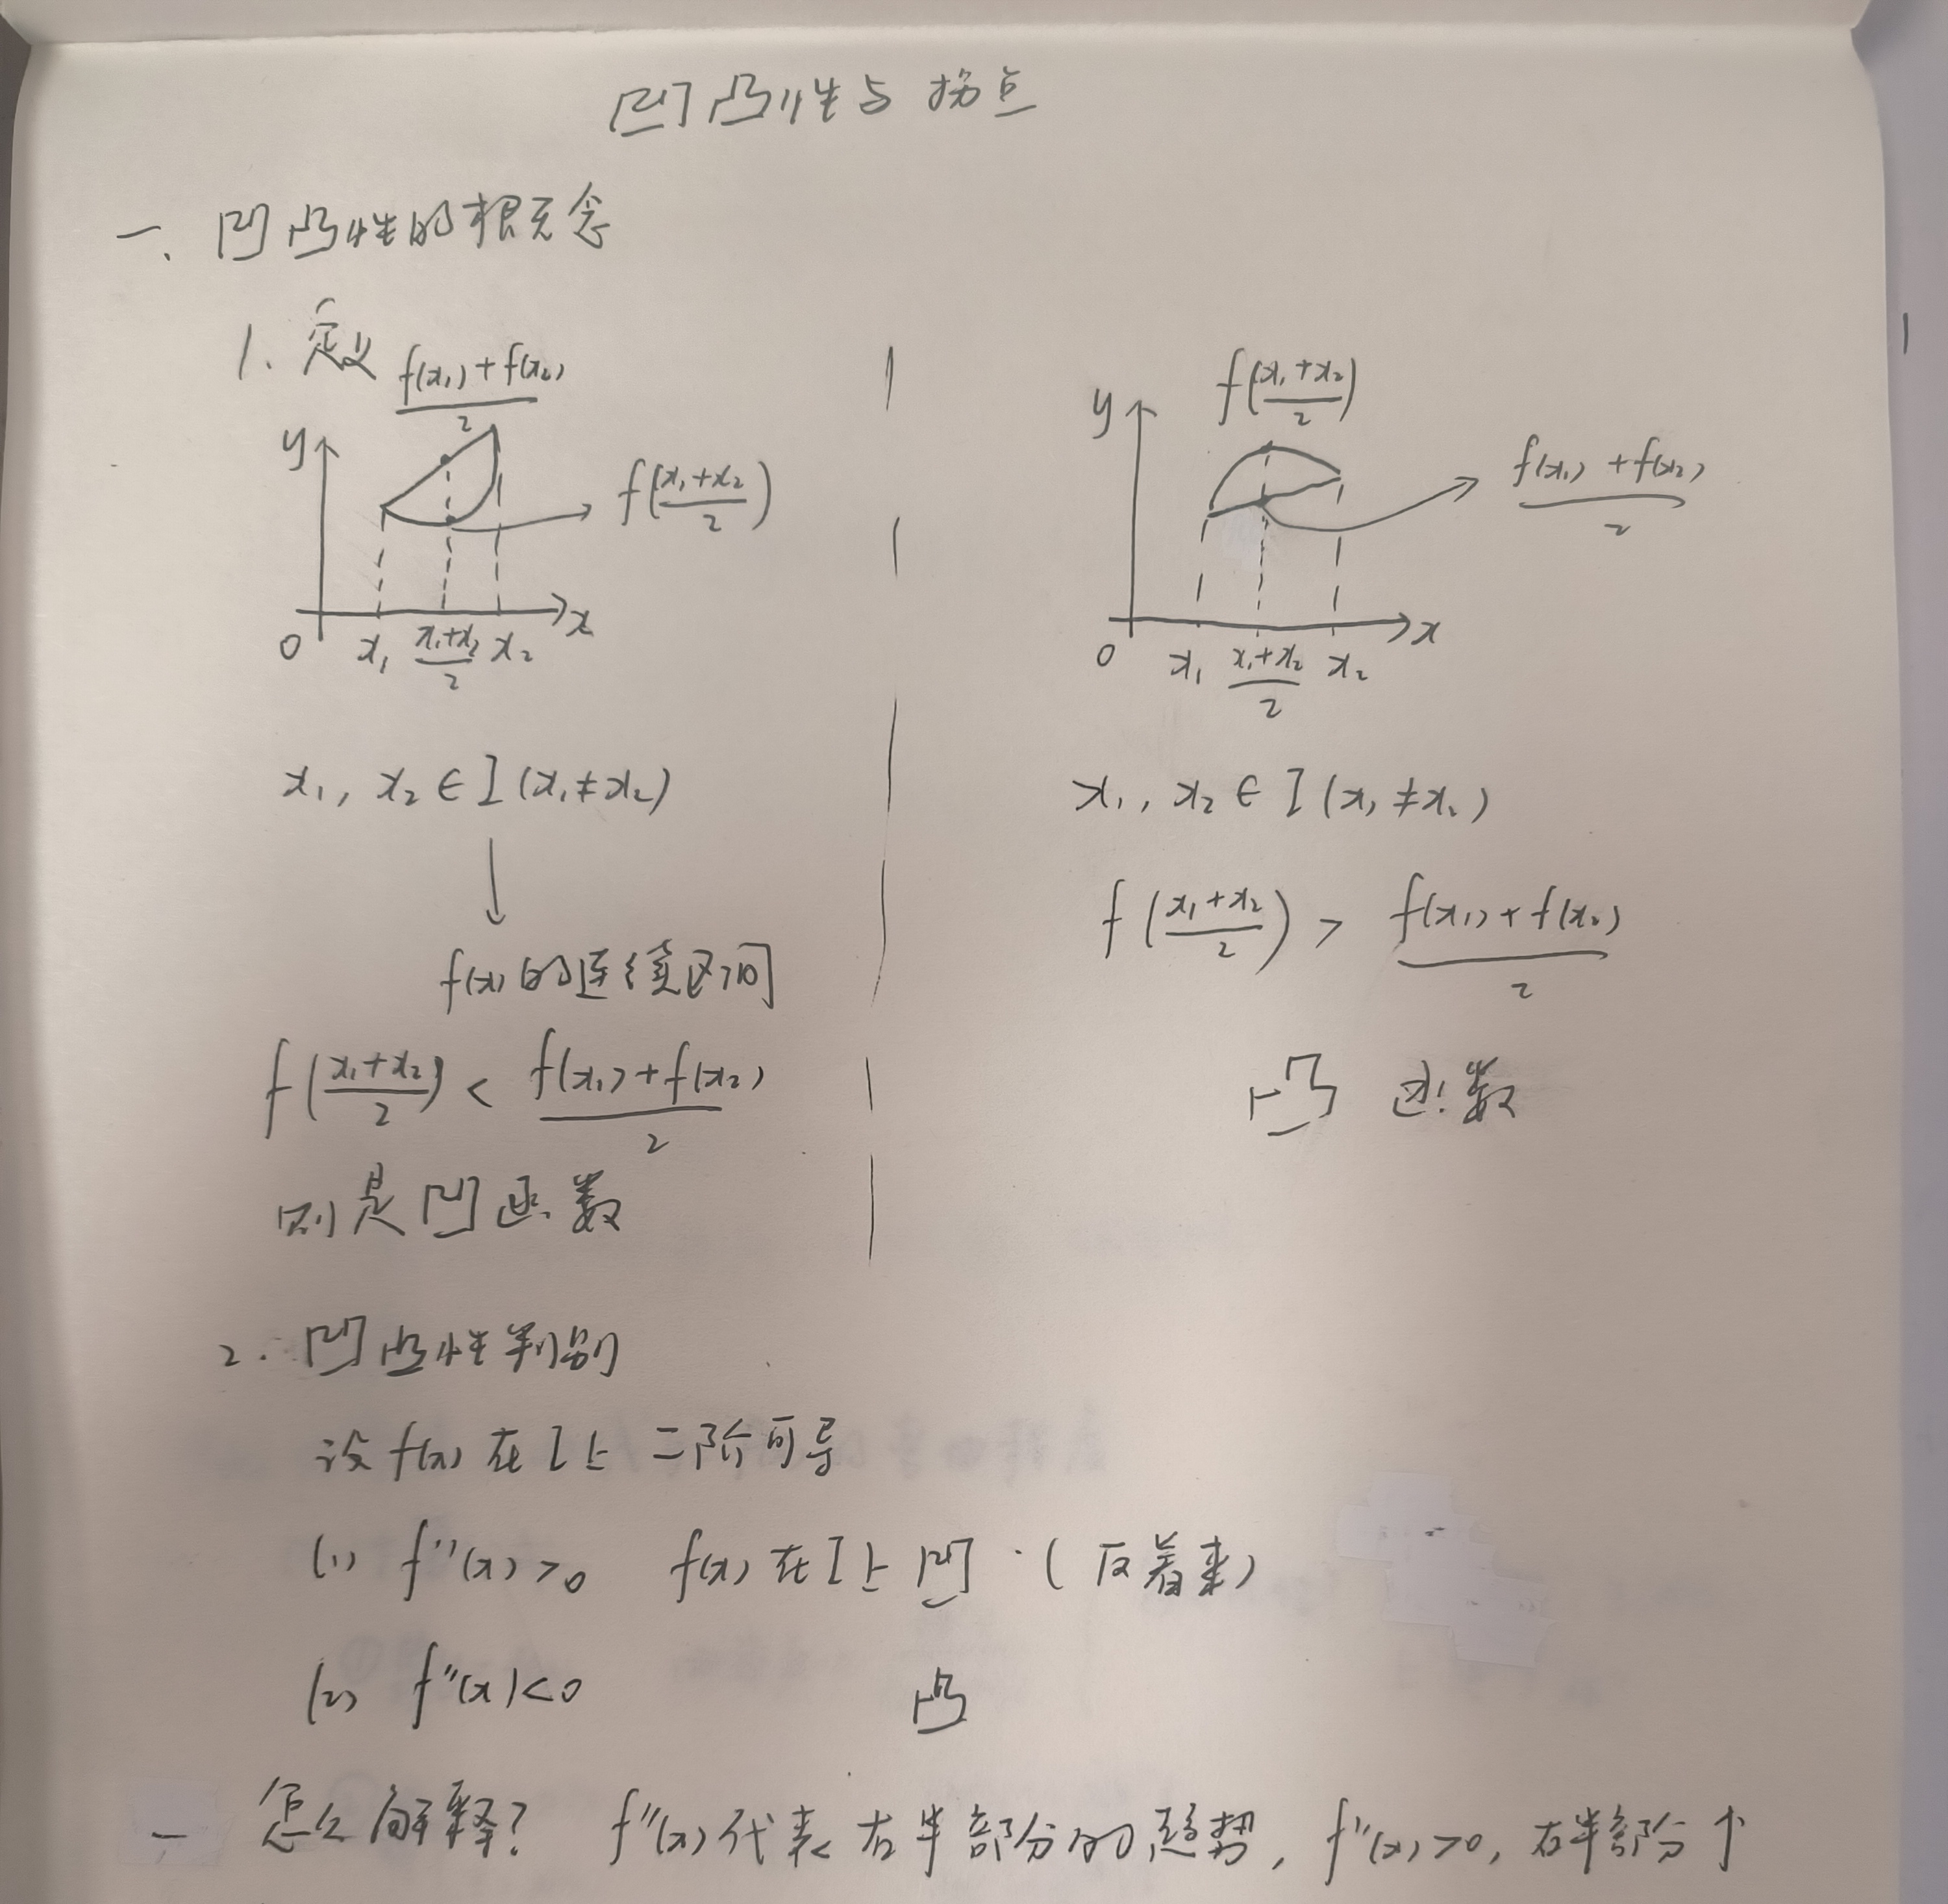 凹凸性与拐点
一、凹凸性的概念
1. 定义
(f(x₁)+f(x₂))/2
y
f((x₁+x₂)/2)
0 x₁ (x₁+x₂)/2 x₂ x
x₁, x₂ ∈ I (x₁≠x₂)
↓
f(x)的连续区间
f((x₁+x₂)/2) < (f(x₁)+f(x₂))/2
则是凹函数
f((x₁+x₂)/2)
y
(f(x₁)+f(x₂))/2
0 x₁ (x₁+x₂)/2 x₂ x
x₁, x₂ ∈ I (x₁≠x₂)
f((x₁+x₂)/2) > (f(x₁)+f(x₂))/2
凸 函数
2. 凹凸性判别
设 f(x) 在 I 上 二阶可导
(1) f''(x)>0 f(x) 在 I 上 凹 (反着来)
(2) f''(x)<0 凸
— 怎么解释? f''(x)代表右半部分的趋势, f''(x)>0, 右半部分↑